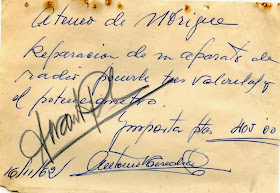 Ateneo de Nörigue
Reparacion de un aparato de
radio ponerle tres valvulas y
el potenciometro.
Importa Pts 400'00
16/11/62